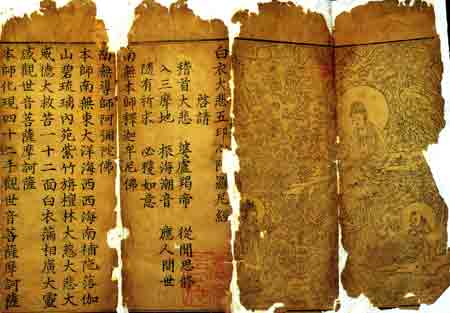 白衣大悲五印陀羅尼經
啓請
稽首大悲 婆盧羯帝 從聞思修
入三摩地 振海潮音 應人間世
隨有祈求 必獲如意
南無本師釋迦牟尼佛
南無導師阿彌陀佛
本師南無東大洋海西西海南補陀洛伽
山碧琉璃內苑紫竹旃檀林大慈大悲大
威德大救苦一十二面白衣滿相廣大靈
感觀世音菩薩摩訶薩
本師化現四十二手觀世音菩薩摩訶薩